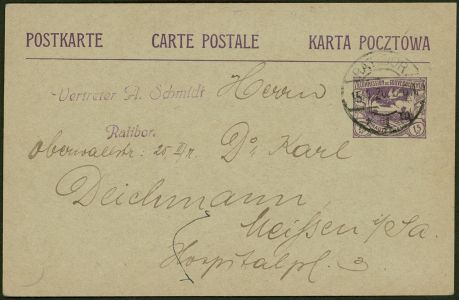 POSTKARTE CARTE POSTALE KARTA POCZTOWA
Vertreter A. Schmidt
Ratibor.
Oberwallstr: 25 II/r.
Herrn
Dr. Karl
Deichmann,
Meißen i/Sa.
Hospitalpl. 3
15